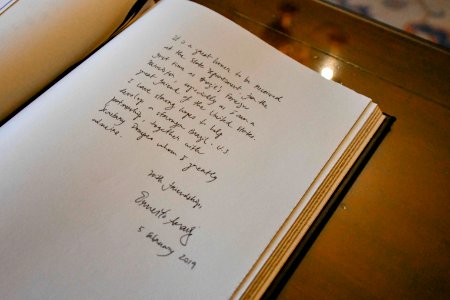 It is a great honor to be received
at the State Department for the
first time as Brazil's Foreign
Minister, especially as I am a
great friend of the United States.
I have strong hopes to help
develop a stronger Brazil-U.S.
partnership, together with
Secretary Pompeo whom I greatly
admire.
With friendship,
Ernesto Araújo
5 February 2019